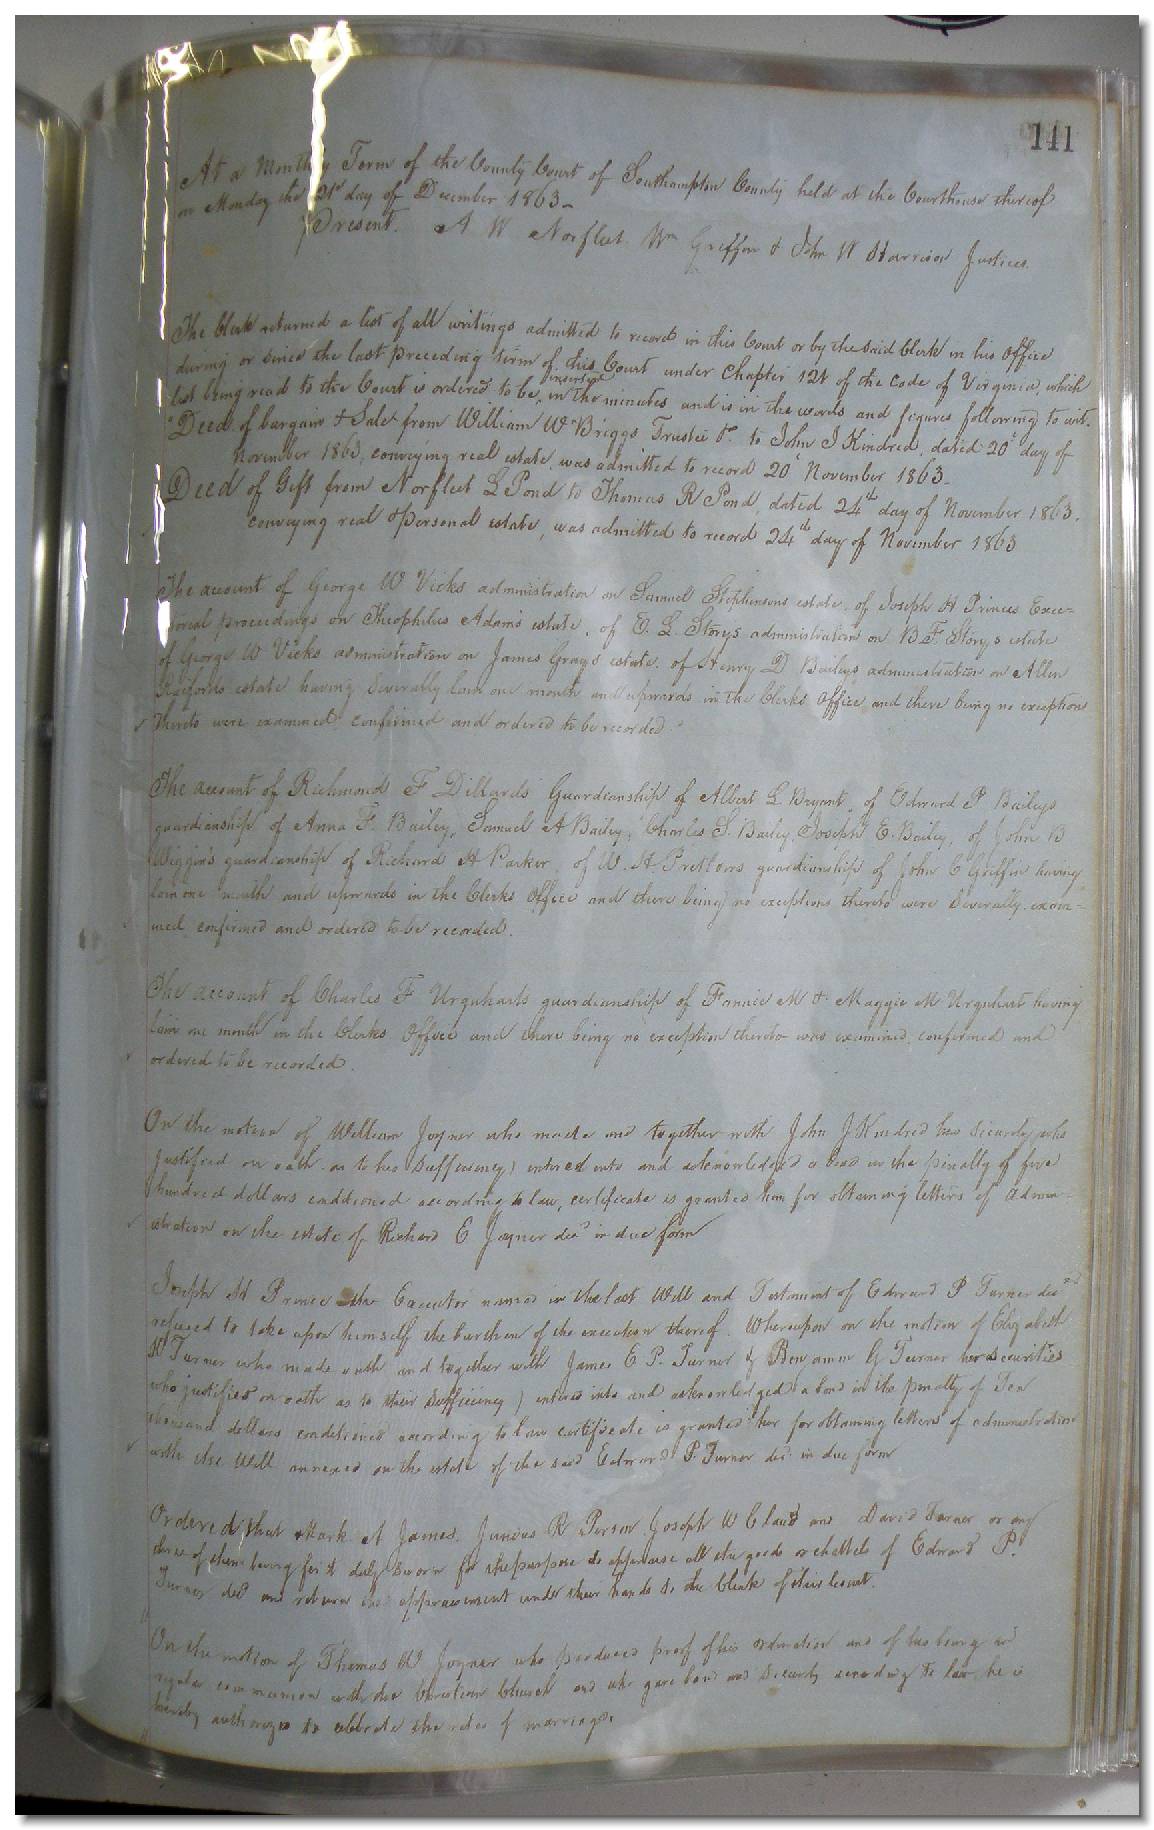 141
At a Monthly Term of the County Court of Southampton County held at the Courthouse thereof
on Monday the 21st day of December 1863-
Present. A W Norfleet, Wm Griffin & John W Harrison Justices.
The Clerk returned a list of all writings admitted to record in this Court or by the said Clerk in his Office
during or since the last preceding term of this Court under Chapter 121 of the Code of Virginia, which
list being read to the Court is ordered to be inserted in the minutes and is in the words and figures following to wit.
"Deed of bargain & Sale from William W Briggs Trustee &c. to John J Kindred, dated 20th day of
November 1863, conveying real estate, was admitted to record 20th November 1863-
Deed of Gift from Norfleet L Pond to Thomas R Pond, dated 24th day of November 1863.
conveying real & personal estate, was admitted to record 24th day of November 1863
The account of George W Vicks administration on Samuel Stephensons estate, of Joseph H Princes Exec-
torial proceedings on Theophilus Adams estate, of O. L. Storys administration on B F Storys estate
of George W Vicks administration on James Grays estate, of Henry D Baileys administration on Allen
Raifords estate having Severally lain one month and upwards in the Clerks Office and there being no exception
thereto were examined confirmed and ordered to be recorded
The account of Richmond F Dillards Guardianship of Albert L Bryant, of Edward P Baileys
guardianship of Anna F. Bailey, Samuel A Bailey, Charles S. Bailey, Joseph E. Bailey, of John B
Wiggins guardianship of Richard H Parker, of W. H Pretlows guardianship of John C Griffin having
lain one month and upwards in the Clerks Office and there being no exceptions thereto were Severally exam-
ined confirmed and ordered to be recorded.
The account of Charles F Urquharts guardianship of Fannie M & Maggie M Urquhart having
lain one month in the Clerks Office and there being no exception thereto was examined, confirmed and
ordered to be recorded.
On the motion of William Joyner who made and together with John J Kindred his Security who
justified on oath as to his Sufficiency) entered into and acknowledged a bond in the penalty of five
hundred dollars conditioned according to law, certificate is granted him for obtaining letters of admin-
istration on the estate of Richard E Joyner decd in due form
Joseph H Prince the Executor named in the last Will and Testament of Edward P Turner decd
refused to take upon himself the burthen of the execution thereof. Whereupon on the motion of Elizabeth
Turner who made oath and together with James E. P. Turner & Benjamin G Turner her securities
who justified on oath as to their Sufficiency) entered into and acknowledged a bond in the penalty of Ten
thousand dollars conditioned according to law certificate is granted her for obtaining letters of administration
with the Will annexed on the estate of the said Edward P. Turner decd in due form
Ordered that Mark A James, Junius R Person, Joseph W Claud and David Turner or any
three of them being first duly Sworn for the purpose do appraise all the goods or chattels of Edward P.
Turner decd and return the appraisement under their hands to the Clerk of this Court.
On the motion of Thomas W Joyner who produced proof of his ordination and of his being in
regular communion with the Christian Church and who gave bond and Security according to law, he is
hereby authorized to celebrate the rites of marriage.